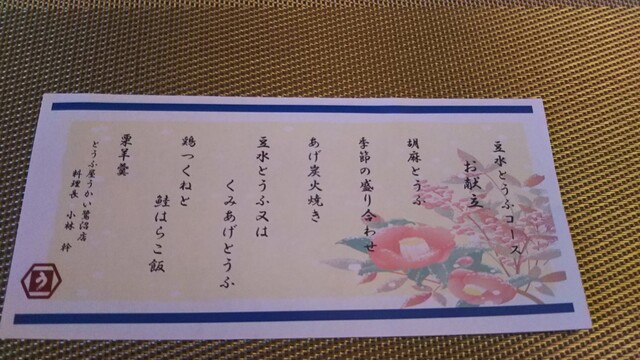 豆水とうふコース
お献立
胡麻とうふ
季節の盛り合わせ
あげ炭火焼き
豆水とうふ又は
くみあげとうふ
鶏つくねと
鮭はらこ飯
栗羊羹
とうふ屋うかい鷺沼店
料理長 小林 幹
う